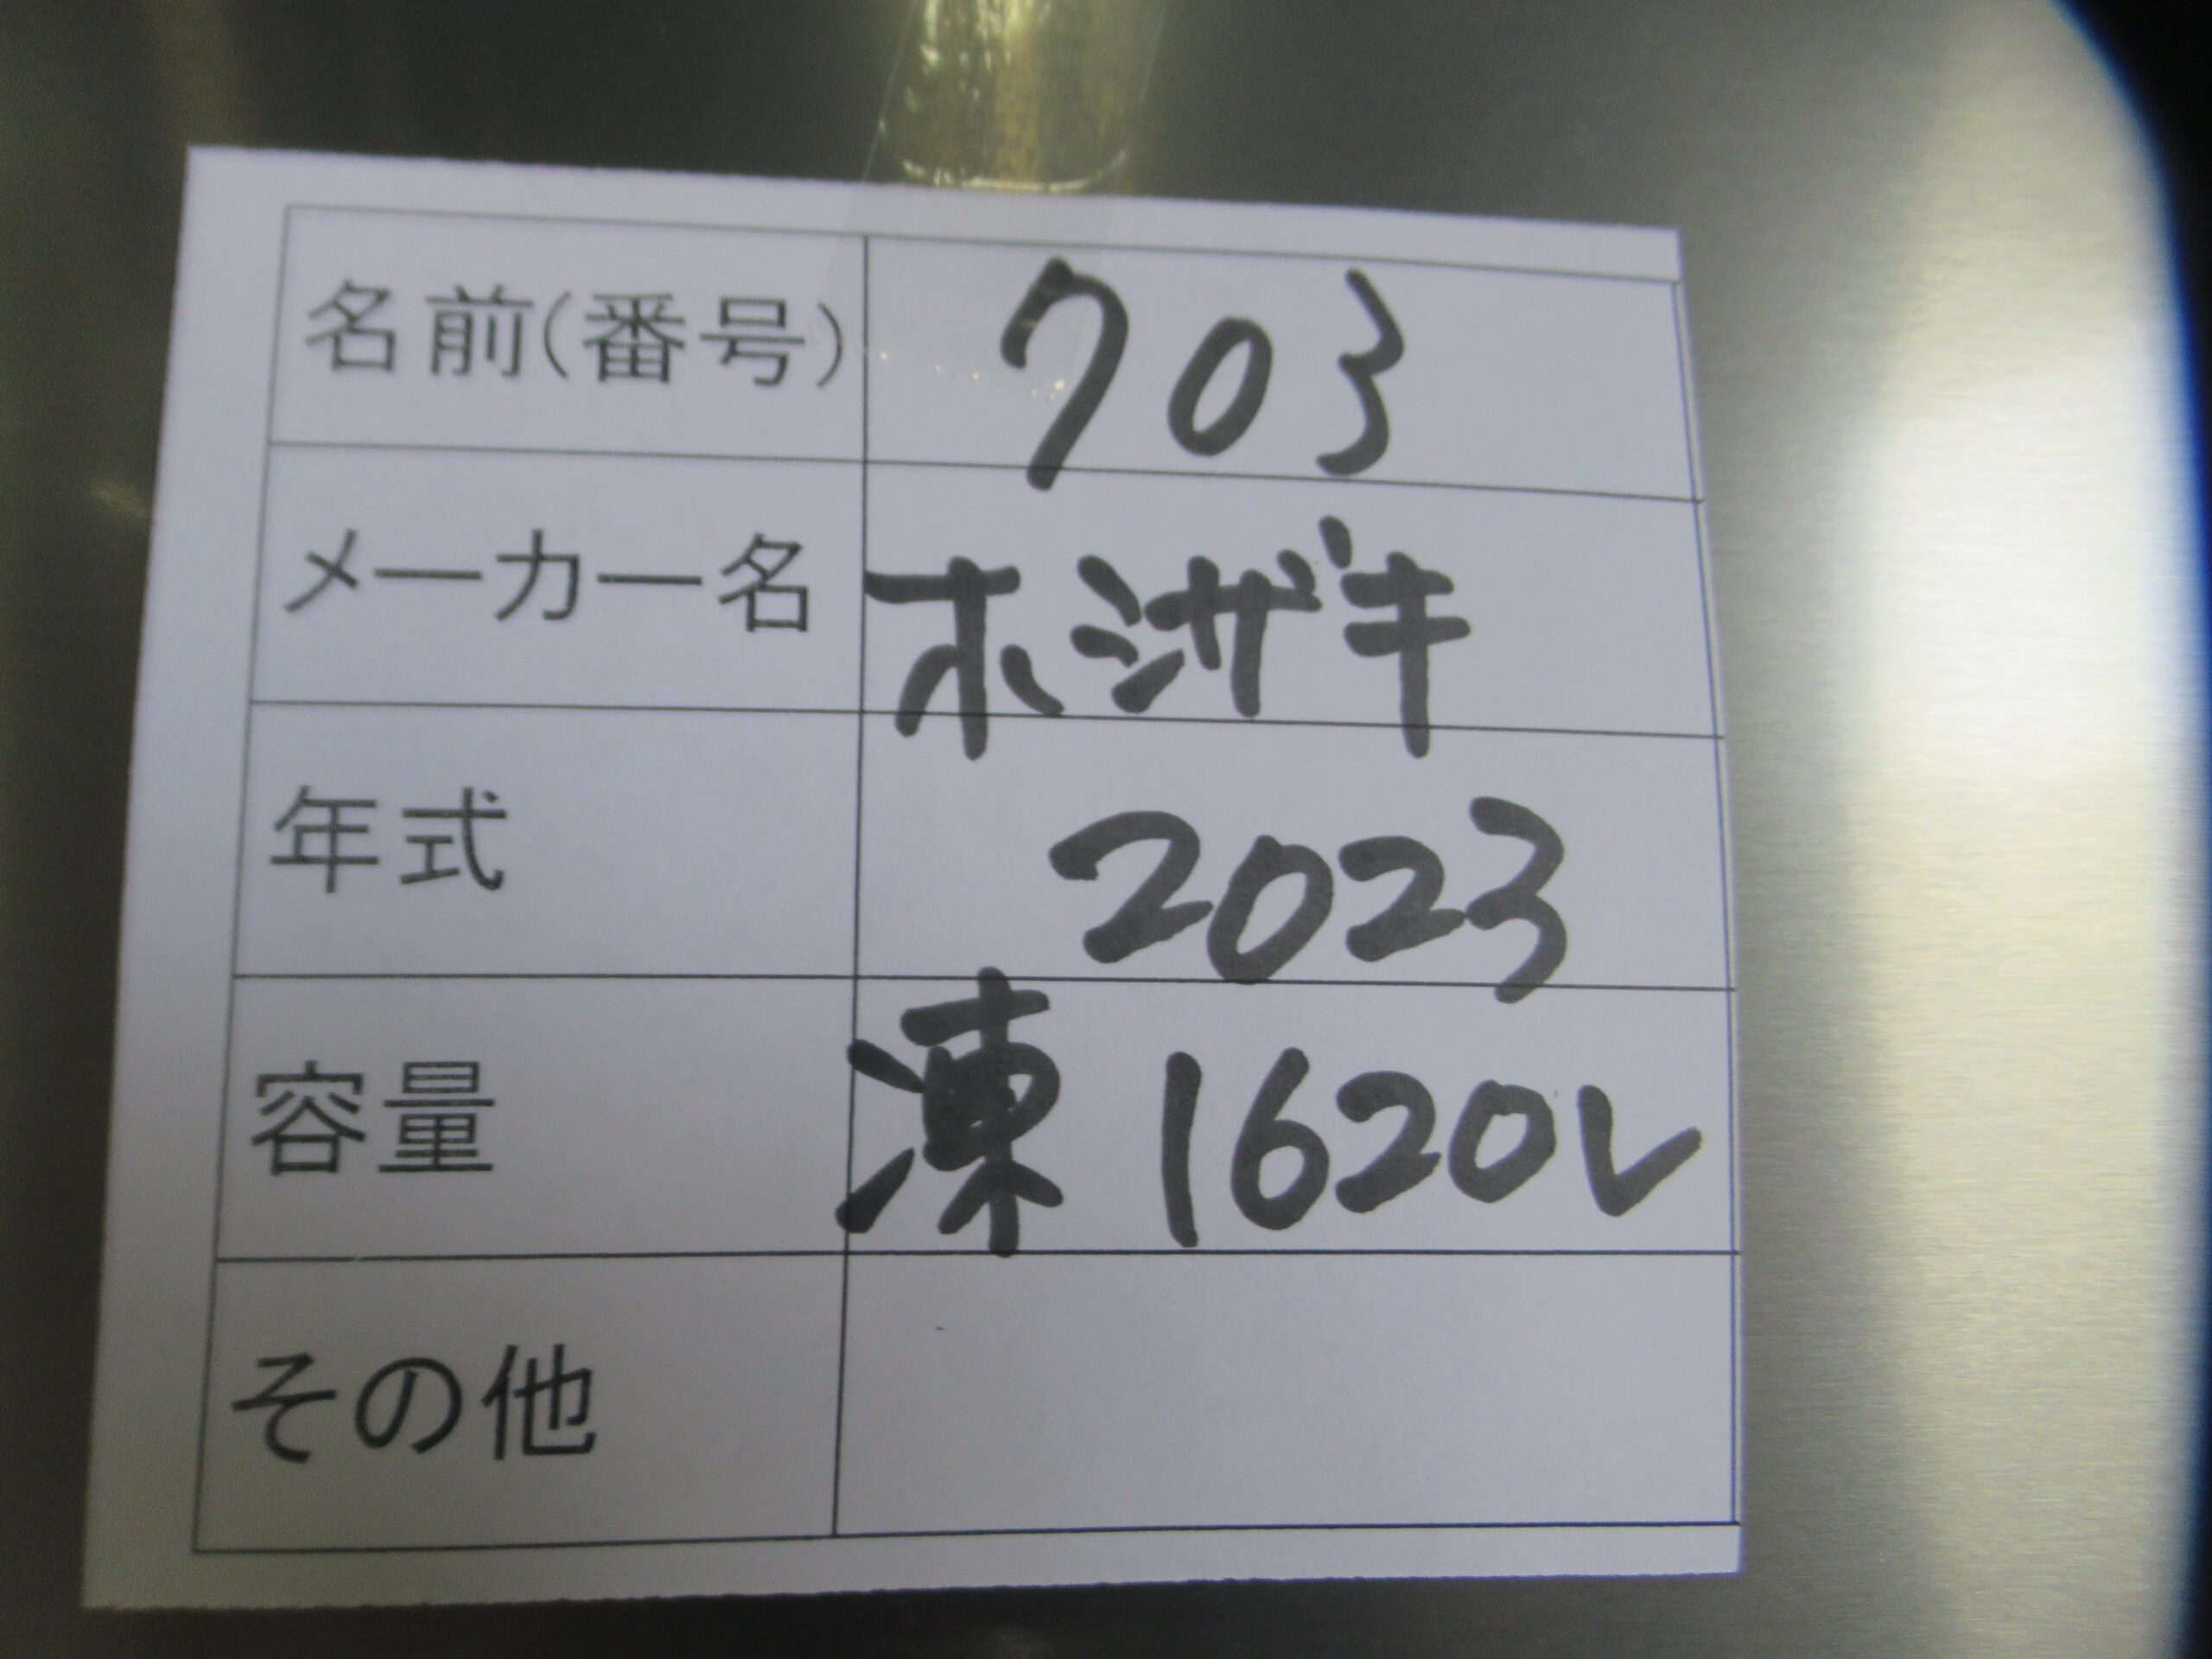 名前(番号) 703
メーカー名 ホシザキ
年式 2023
容量 凍 1620L
その他